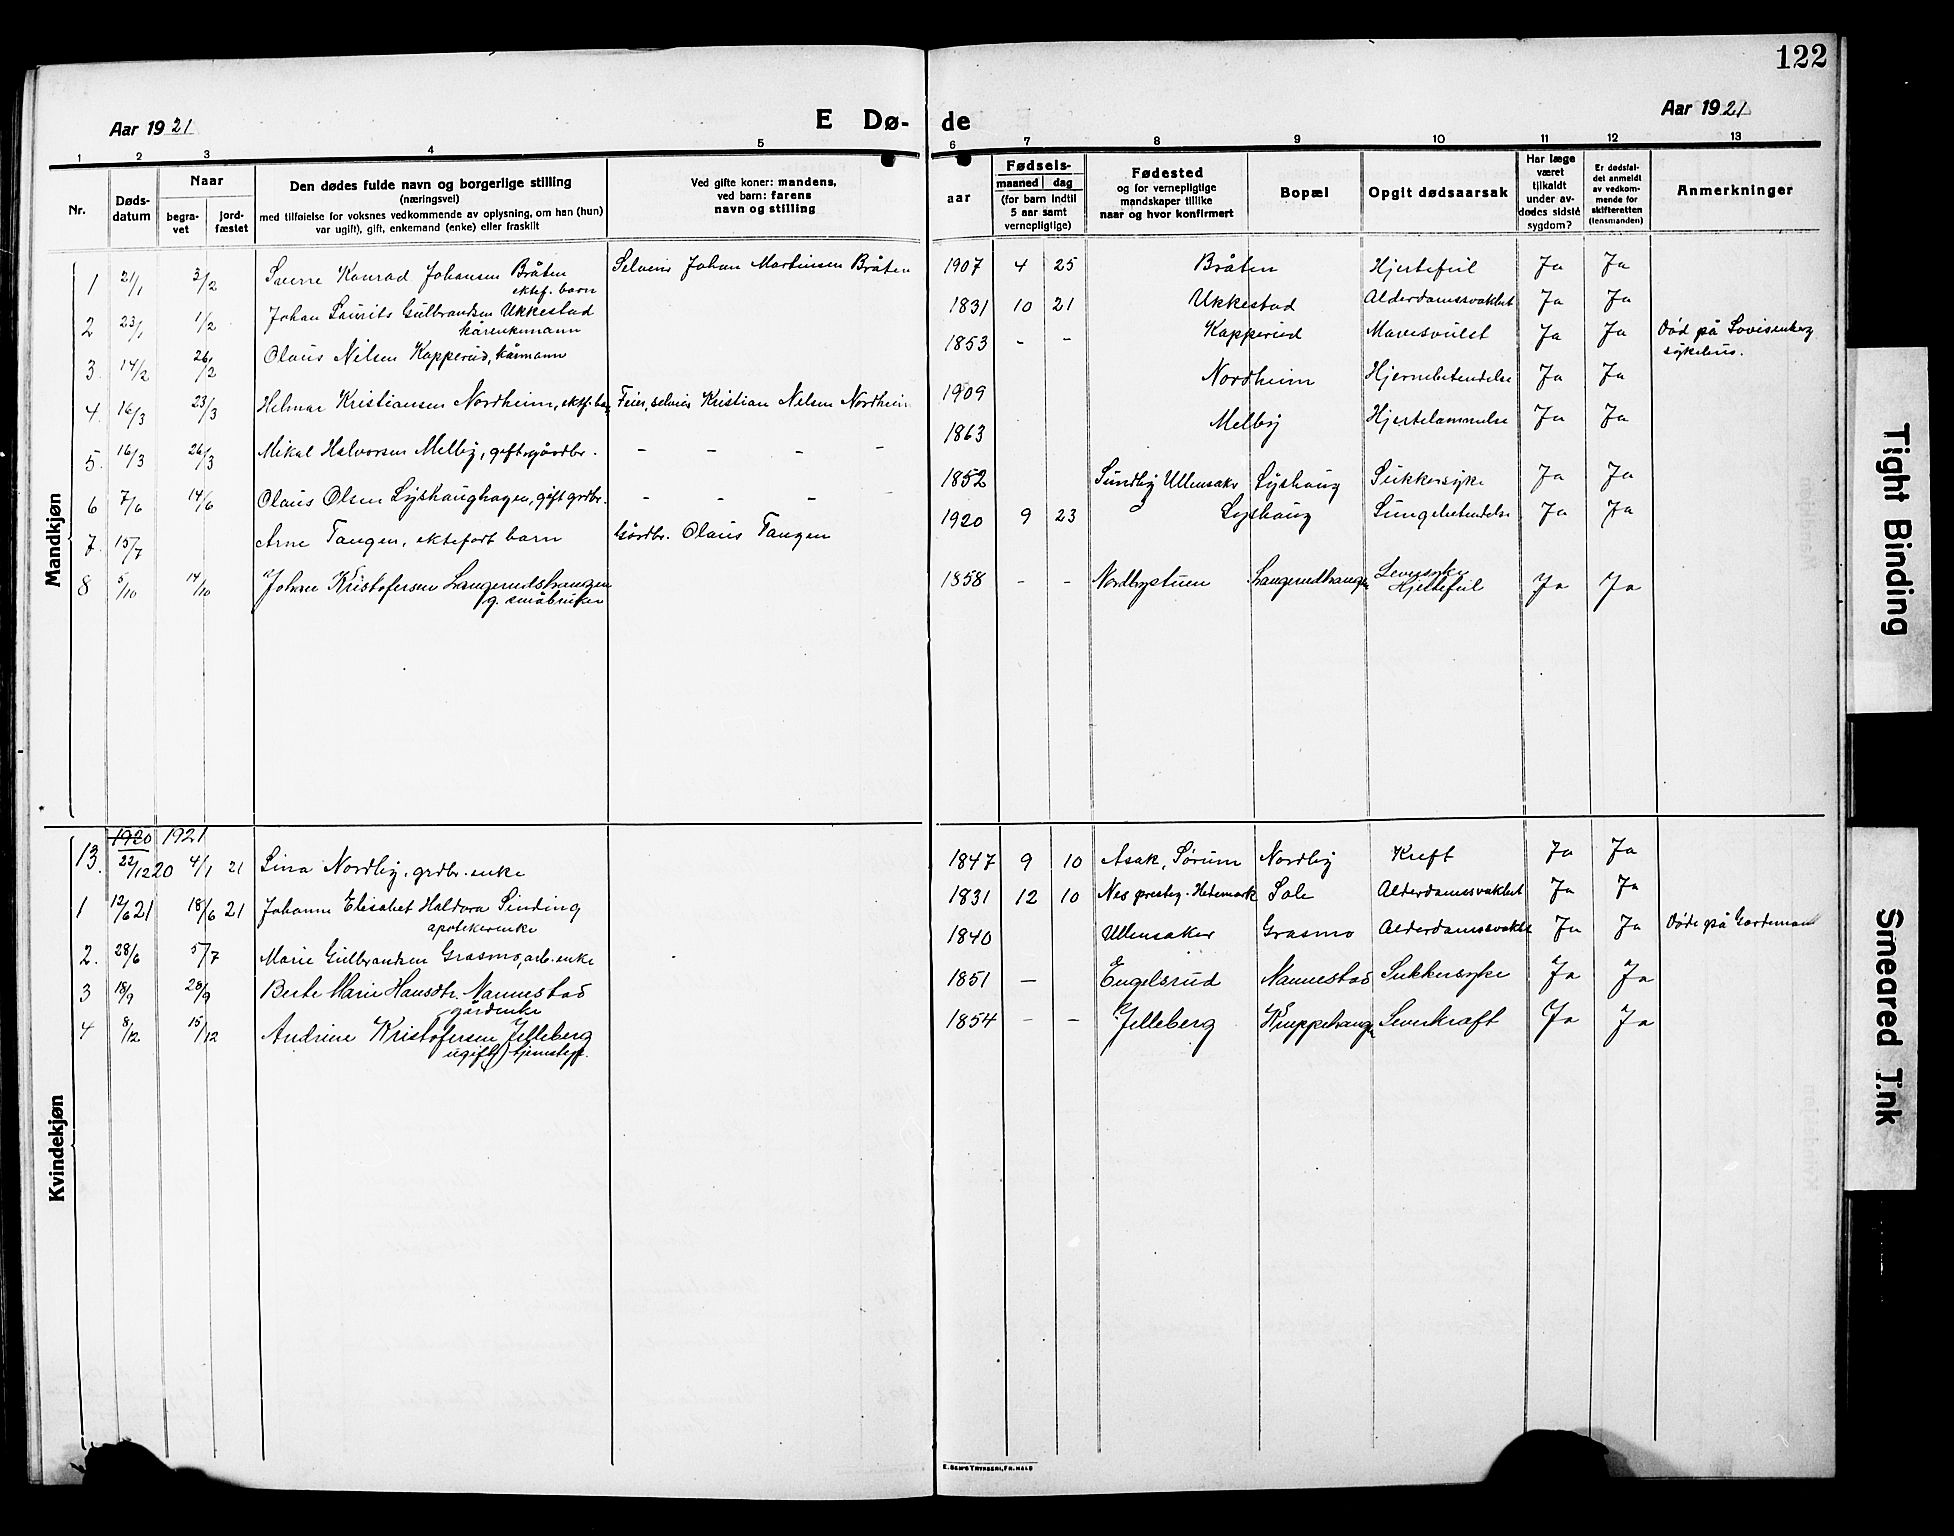 122
Aar 1921
E Dø-
de
Aar 1921
1 2 3 4 5 6 7 8 9 10 11 12 13
Nr.
Døds-
datum
Naar
begra-
vet
jord-
fæstet
Den dødes fulde navn og borgerlige stilling
(næringsvei)
med tilføielse for voksnes vedkommende av oplysning, om han (hun)
var ugift), gift, enkemand (enke) eller fraskilt
Ved gifte koner: mandens,
ved barn: farens
navn og stilling
aar
Fødsels-
maaned dag
(for barn indtil
5 aar samt
vernepligtige)
Fødested
og for vernepligtige
mandskaper tillike
naar og hvor konfirmert
Bopæl
Opgit dødsaarsak
Har læge
været
tilkaldt
under av-
dødes sidste
sygdom?
Er dødsfal-
det anmeldt
av vedkom-
mende for
skifteretten
(lensmanden)
Anmerkninger
Mandkjøn
1 21/1 3/2 Sverre Konrad Johansen Bråten Selveier Johan Martinsen Bråten 1907 4 25 Bråten Hjertefeil Ja Ja
ektef. barn
2 23/1 1/2 Johan Laurits Gulbrandsen Ukkestad 1831 10 21 Ukkestad Alderdomssvakhet Ja Ja
kårenkemann
3. 14/2 26/2 Olaus Nilsen Kapperud, kårmann 1853 - - Kapperud Mavesvulst Ja Ja Død på Lovisenberg
sykehus.
4. 16/3 23/3 Helmar Kristiansen Nordheim, ektf. barn Feier, selveier Kristian Nelsen Nordheim 1909 Nordheim Hjernebetendelse Ja Ja
5. 16/3 26/3 Mikal Halvorsen Melby, gift gårdbr. - - - - 1863 Melby Hjertelammelse Ja Ja
6 7/6 14/6 Olaus Olsen Lyshaughagen, gift grdbr. - - - - 1852 Sundby Ullensaker Lyshaug Sukkersyke Ja Ja
7. 15/7 Arne Tangen, ektefødt barn Gårdbr. Olaus Tangen 1920 9 23 Lyshaug Lungebetendelse Ja Ja
8 5/10 14/10 Johan Kristofersen Langerudshaugen 1858 - - Nordbystuen Langerudhaugen Leversyke Ja Ja
g. småbruker Hjertefeil
Kvindekjøn
1920 1921
13. 22/12 20 4/1 21 Lina Nordby, grdbr. enke 1847 9 10 Asak, Sørum Nordby Kreft Ja Ja
1 12/6 21 18/6 21 Johanne Elisabet Haldora Sinding 1831 12 10 Nes prestegj. Hedemark Sole Alderdomssvakhet Ja Ja
apotekerenke
2. 28/6 5/7 Marie Gulbrandsen Grasmo, arb. enke 1840 Ullensaker Grasmo Alderdomssvakhet Ja Ja Døde på Gardemoen
3 18/9 28/9 Berte Marie Hansdtr. Nannestad 1851 - Engelsrud Nannestad Sukkersyke Ja Ja
gårdenke
4 8/12 15/12 Andrine Kristofersen Jelleberg 1854 - - Jelleberg Kneppehaugen Leverkræft Ja Ja
ugift, tjenestepi.
E. SEM'S TRYKKERI, FR.HALD
Tight Binding
Smeared Ink